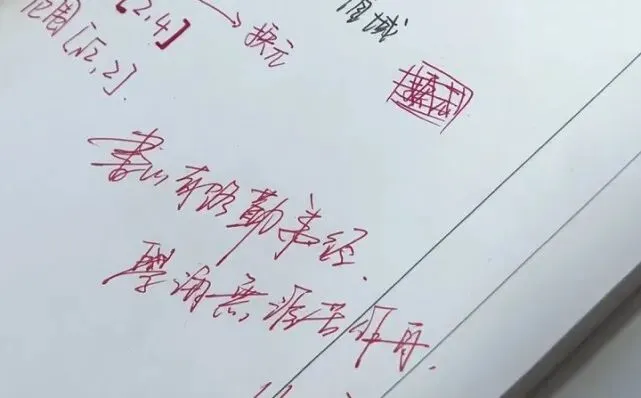 [2,4] → 换元
值域
范围[√2,2].
书山有路勤为径.
学海无涯苦作舟.